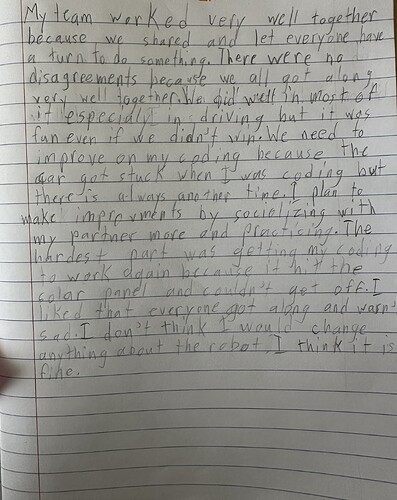 My team worked very well together
because we shared and let everyone have
a turn to do something. There were no
disagreements because we all got along
very well together. We did well in most of
it especially in driving but it was
fun even if we didn't win. We need to
improve on my coding because the
car got stuck when I was coding but
there is always another time. I plan to
make improvments by socializing with
my partner more and practicing. The
hardest part was getting my coding
to work again because it hit the
solar panel and couldn't get off. I
liked that everyone got along and wasn't
sad. I don't think I would change
anything about the robot. I think it is
fine.